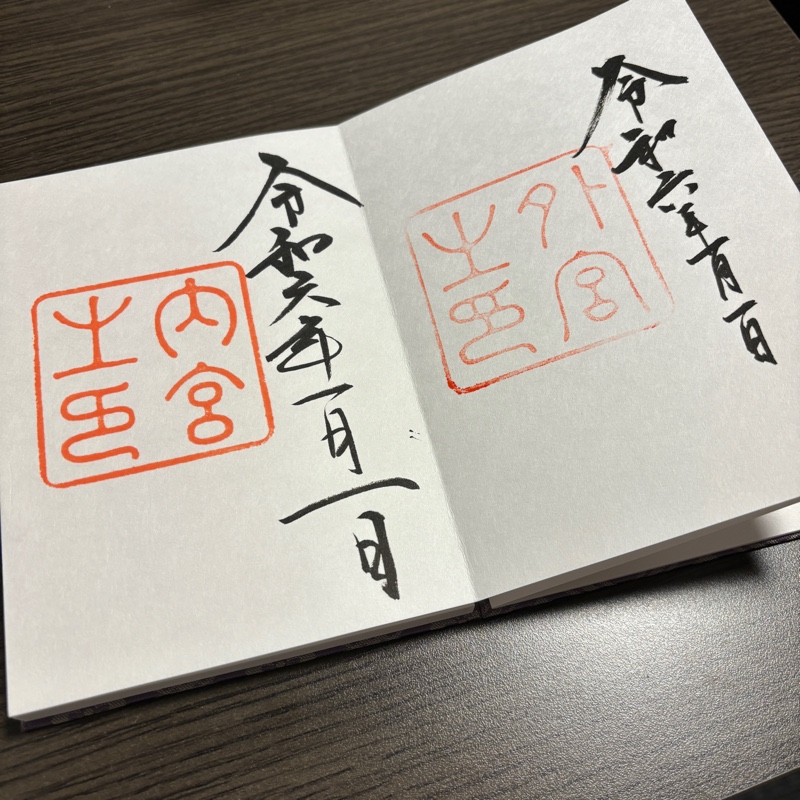 令和六年一月一日
外宮
之印
令和六年一月一日
内宮
之印